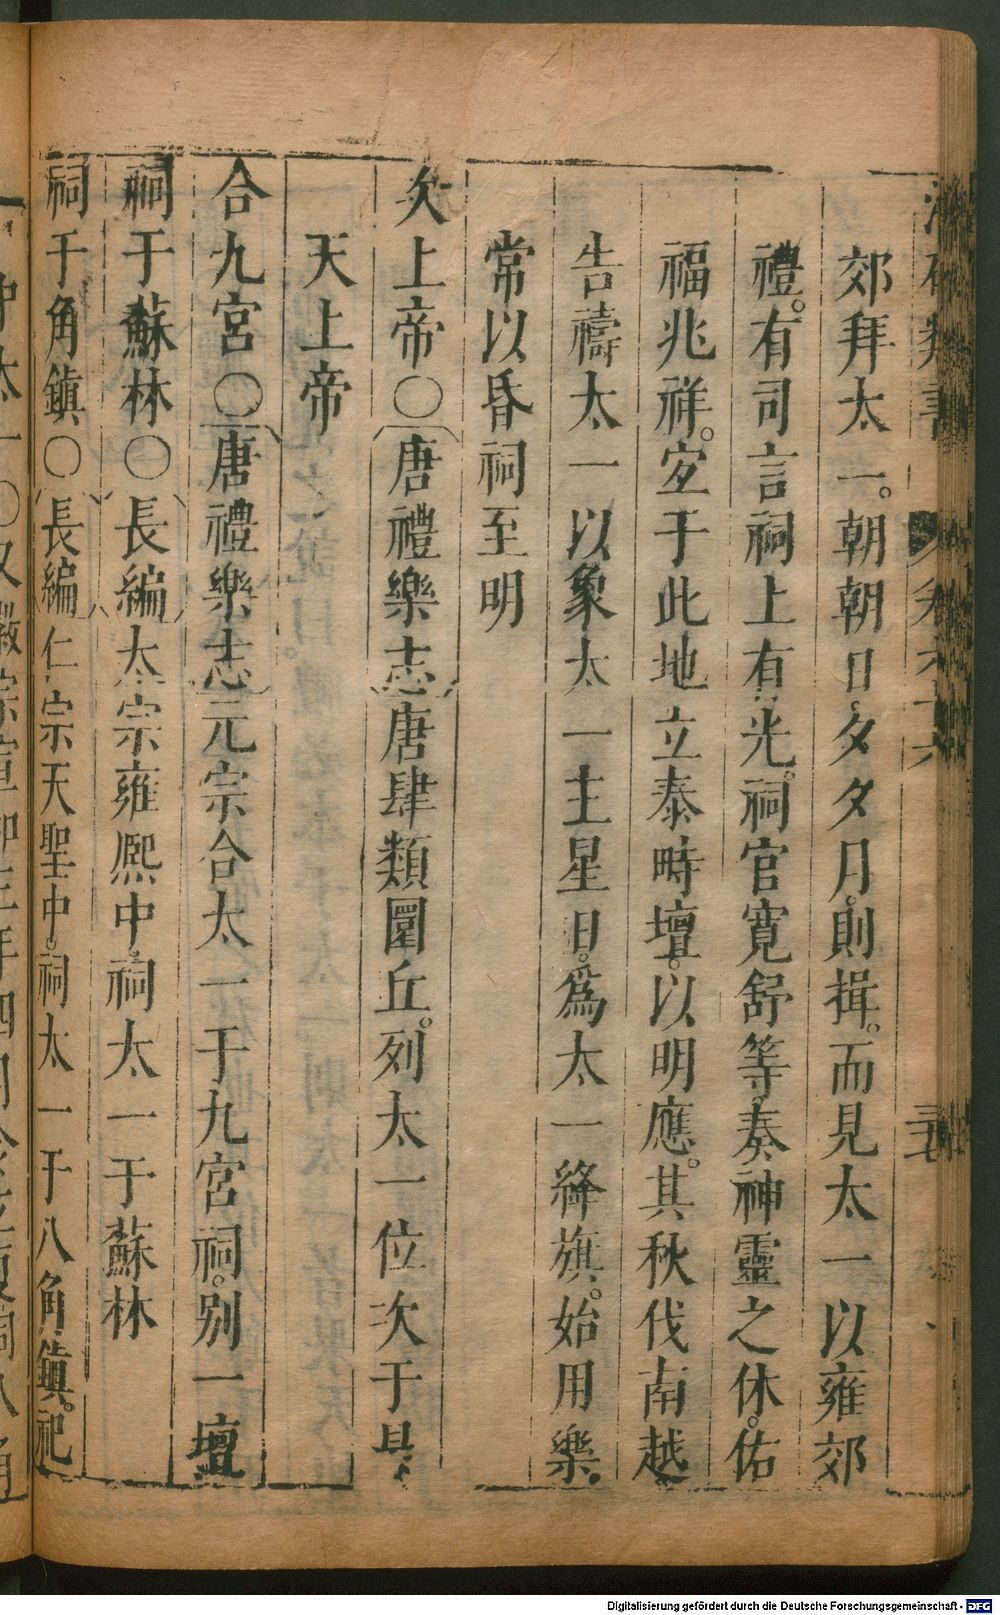 郊拜太一。朝朝日。夕夕月。則揖。而見太一以雍郊
禮。有司言祠上有光。祠官寬舒等奏神靈之休。佑
福兆祥。宐于此地立泰畤壇。以明應。其秋伐南越
告禱太一以象太一主星日。爲太一絳旗。始用樂。
常以昏祠至明
次上帝〇唐禮樂志唐肆類圜丘。列太一位次于昊
天上帝
合九宮〇唐禮樂志元宗合太一于九宮祠。別一壇
祠于蘇林〇長編太宗雍熙中。祠太一于蘇林
祠于角鎮〇長編仁宗天聖中。祠太一于八角鎮。祀
Digitalisierung gefördert durch die Deutsche Forschungsgemeinschaft - DFG